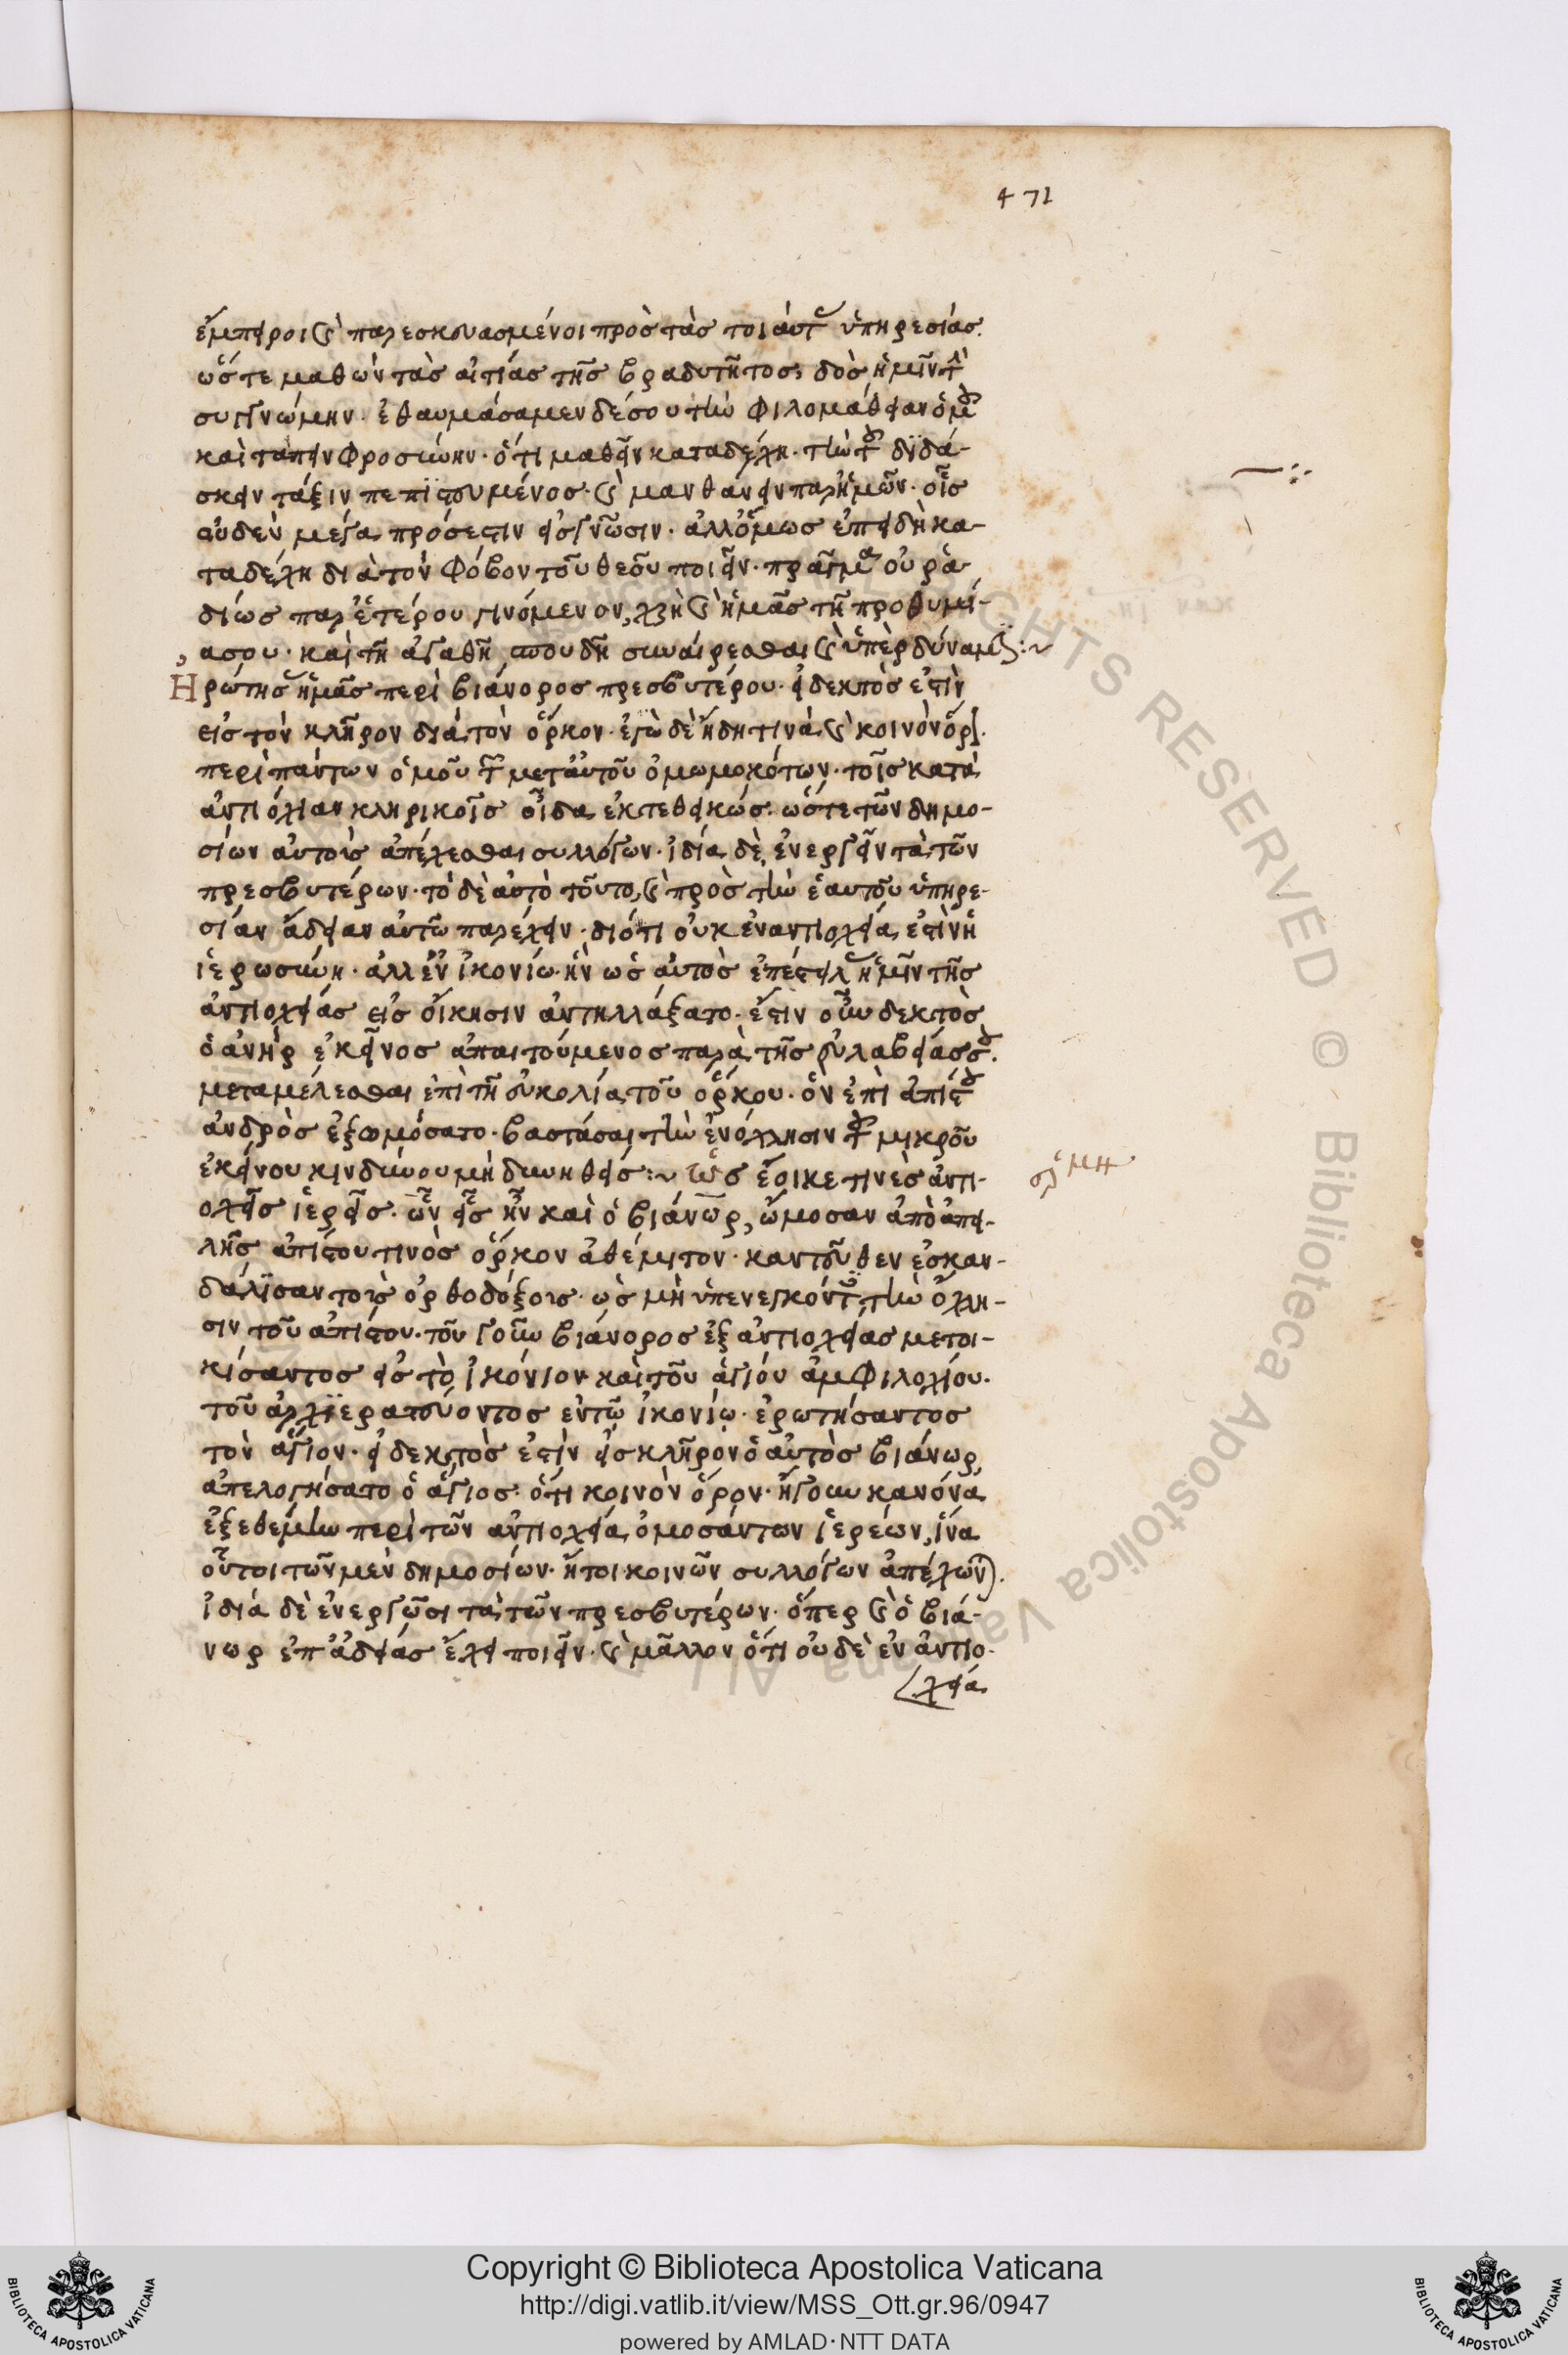 471
ἔμπειροι καὶ παρεσκευασμένοι πρὸς τὰς τοιαύτ ὑπηρεσίας.
ὥστε μαθὼν τὰς αἰτίας τῆς βραδυτῆτος, δὸς ἡμῖν τ
συγγνώμην. ἐθαυμάσαμεν δέ σου τὴν φιλομάθειαν ὁμ
καὶ ταπεινφροσύνην. ὅτι μαθεῖν καταδέχη. τὴν τ διδά-
σκειν τάξιν πεπιστευμένος. καὶ μανθάνειν παρ ἡμῶν. οἷς
οὐδὲν μέγα πρόσεστιν εἰς γνῶσιν. ἀλλ ὅμως ἐπειδὴ κα-
ταδέχη διὰ τὸν φόβον τοῦ θεοῦ ποιεῖν. πρᾶγμα οὐ ρα-
δίως παρ ἑτέρου γινόμενον, χρὴ καὶ ἡμᾶς τῆ προθυμί-
α σου. καὶ τῆ ἀγαθῆ σπουδῆ συναίρεσθαι καὶ ὑπὲρ δύναμιν :~
Ηρώτησ ἡμᾶς περὶ βιάνορος πρεσβυτέρου. εἰ δεκτὸς ἐστὶν
εἰς τὸν κλῆρον διὰ τὸν ὅρκον. ἐγὼ δὲ ἤδη τινὰ καὶ κοινὸν ὅρ.
περὶ πάντων ὁμοῦ τ μετ αὐτοῦ ὀμωμοκότων. τοῖς κατὰ
ἀντιόχιαν κληρικοῖς οἶδα ἐκτεθεικώς. ὥστε τῶν δημο-
σίων αὐτοὺς ἀπέχεσθαι συλλόγων. ἰδία δὲ ἐνεργεῖν τὰ τῶν
πρεσβυτέρων. τὸ δὲ αὐτὸ τοῦτο, καὶ πρὸς τὴν ἑαυτοῦ ὑπηρε-
σίαν ἄδειαν αὐτῶ παρέχειν. διότι οὐκ ἐν ἀντιοχεία ἐστὶν ἡ
ἱερωσύνη. ἀλλ ἐν ἰκονίω. ἣν ὡς αὐτὸς ἐπέστειλ ἡμῖν τῆς
ἀντιοχείας εἰς οἴκησιν ἀντηλλάξατο. ἔστιν οὖν δεκτὸς
ὁ ἀνὴρ ἐκεῖνος ἀπαιτούμενος παρὰ τῆς εὐλαβείας σ.
μεταμέλεσθαι ἐπὶ τῆ εὐκολία τοῦ ὅρκου. ὃν ἐπὶ ἀπίστ
ἀνδρὸς ἐξωμόσατο. βαστάσαι τὴν ἐνόχλησιν τ μικροῦ
ἐκείνου κινδύνου μὴ δυνηθείς :~ Ὡς ἔοικε τινὲς ἀντι-
οχεῖς ἱερεῖς. ὧν εἷς ἦν καὶ ὁ βιάνωρ, ὤμοσαν ἀπὸ ἀπει-
λῆς ἀπίστου τινὸς ὅρκον ἀθέμιτον. καντεῦθεν ἐσκαν-
δάλισαν τοὺς ὀρθοδόξους. ὡς μὴ ὑπενεγκόντ τὴν ὄχλη-
σιν τοῦ ἀπίστου. τοῦ γοῦν βιάνορος ἐξ ἀντιοχείας μετοι-
κίσαντος εἰς τὸ ἰκόνιον καὶ τοῦ ἁγίου ἀμφιλοχίου.
τοῦ ἀρχιερατεύοντος ἐν τῶ ἰκονίω. ἐρωτήσαντος
τὸν ἅγιον. εἰ δεκτὸς ἐστὶν εἰς κλῆρον ὁ αὐτὸς βιάνωρ,
ἀπελογήσατο ὁ ἅγιος. ὅτι κοινὸν ὅρον. ἤγουν κανόνα
ἐξεθέμην περὶ τῶν ἀντιοχεία ὀμοσάντων ἱερέων, ἵνα
οὗτοι τῶν μὲν δημοσίων. ἤτοι κοινῶν συλλόγων ἀπέχων.
ἰδία δὲ ἐνεργῶσι τὰ τῶν πρεσβυτέρων. ὅπερ καὶ ὁ βιά-
νωρ ἐπ ἀδείας ἔχει ποιεῖν. καὶ μᾶλλον ὅτι οὐδὲ ἐν ἀντιο-
χεία
Copyright © Biblioteca Apostolica Vaticana
http://digi.vatlib.it/view/MSS_Ott.gr.96/0947
powered by AMLAD·NTT DATA
BIBLIOTECA APOSTOLICA VATICANA
BIBLIOTECA APOSTOLICA VATICANA